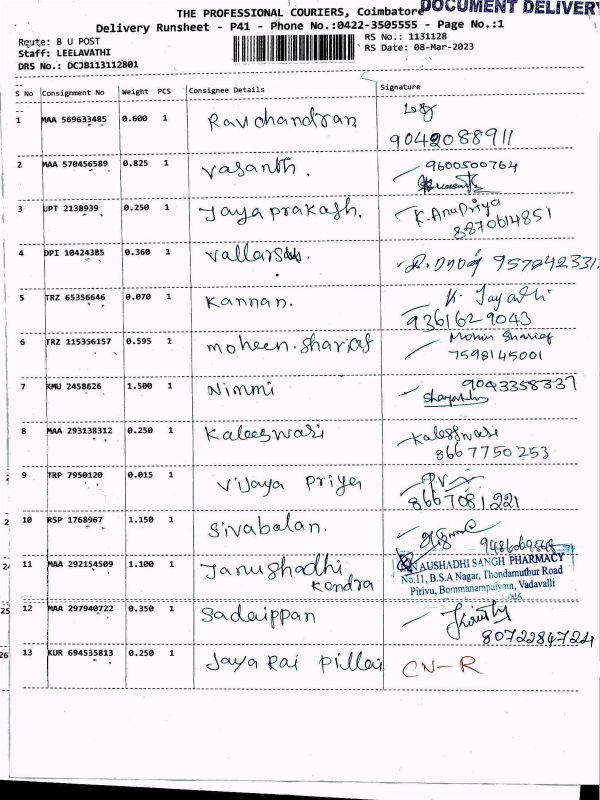 DOCUMENT DELIVERY
THE PROFESSIONAL COURIERS, Coimbatore
Delivery Runsheet - P41 - Phone No.:0422-3505555 - Page No.:1
Route: B U POST
RS No.: 1131128
Staff: LEELAVATHI
RS Date: 08-Mar-2023
DRS No.: DCJB113112801
S No Consignment No Weight PCS Consignee Details Signature
1 MAA 569633485 0.600 1 Ravichandran
9042088911
2 MAA 570456589 0.825 1 Vasanth. 9600500764
3 UPT 2138939 0.250 1 Jayaprakash. K.AnuPriya
8870614851
4 DPI 10424385 0.360 1
5 TRZ 65356646 0.070 1 Kannan. K. Jayanthi
9361629043
6 TRZ 115356157 0.595 1 moheen.shariaf Mohin Sharief
7598145001
7 KMU 2458626 1.500 1 Nimmi 9043358337
8 MAA 293138312 0.250 1 Kaleeswari Kaleeswari
8667750253
9 TRP 7950120 0.015 1 Vijaya Priya
8667081221
10 RSP 1768967 1.150 1 Sivabalan.
11 MAA 292154509 1.100 1 Janushadhi AUSHADHI SANGH PHARMACY
Kendra No.11, B.S.A Nagar, Thondamuthur Road
Pirivu, Bommanampalyam, Vadavalli
12 MAA 297940722 0.350 1 Sadaippan
8072284724
13 KUR 694535813 0.250 1 Jaya Raj Pillai CN-R